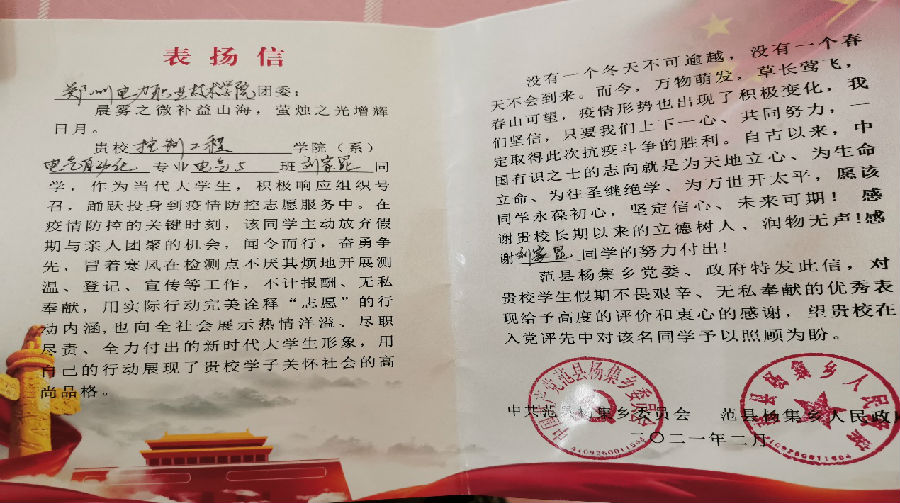 表扬信
郑州电力职业技术学院团委：
晨雾之微补益山海，萤烛之光增辉
日月。
贵校控制工程学院（系）
电气自动化专业电气5班刘家昆同
学，作为当代大学生，积极响应组织号
召，踊跃投身到疫情防控志愿服务中。在
疫情防控的关键时刻，该同学主动放弃假
期与亲人团聚的机会，闻令而行，奋勇争
先，冒着寒风在检测点不厌其烦地开展测
温、登记、宣传等工作，不计报酬、无私
奉献，用实际行动完美诠释“志愿”的行
动内涵,也向全社会展示热情洋溢、尽职
尽责、全力付出的新时代大学生形象，用
自己的行动展现了贵校学子关怀社会的高
尚品格。
没有一个冬天不可逾越，没有一个春
天不会到来。而今，万物萌发，草长莺飞，
春山可望，疫情形势也出现了积极变化，我
们坚信，只要我们上下一心、共同努力，一
定取得此次抗疫斗争的胜利。自古以来，中
国有识之士的志向就是为天地立心、为生命
立命、为往圣继绝学、为万世开太平，愿该
同学永葆初心，坚定信心、未来可期！感
谢贵校长期以来的立德树人、润物无声!感
谢刘家昆同学的努力付出！
范县杨集乡党委、政府特发此信，对
贵校学生假期不畏艰辛、无私奉献的优秀表
现给予高度的评价和衷心的感谢，望贵校在
入党评先中对该名同学予以照顾为盼。
中共范县杨集乡委员会 范县杨集乡人民政府
二〇二一年二月
中国共产党范县杨集乡委员会
4109260011504
范县杨集乡人民政府